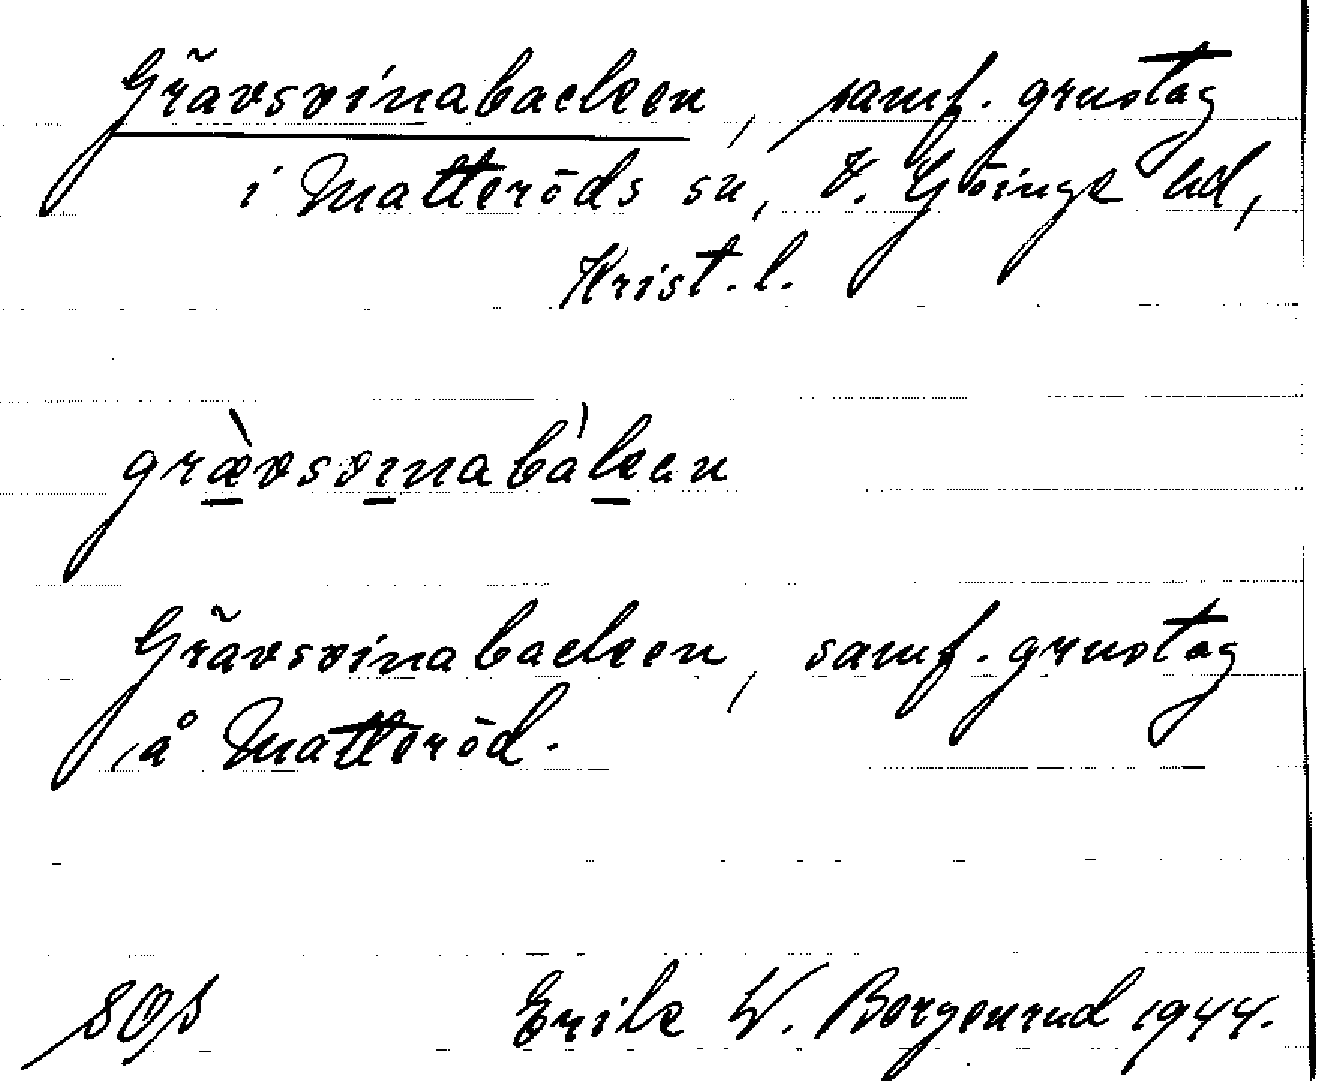 Grävsvinabacken, samf. grustag
i Matteröds sn, V. Göinge hd,
Krist. l.
grævsvinabàkan
Grävsvinabacken, samf. grustag
å Matteröd.
Erik W. Borgenrud 1944.